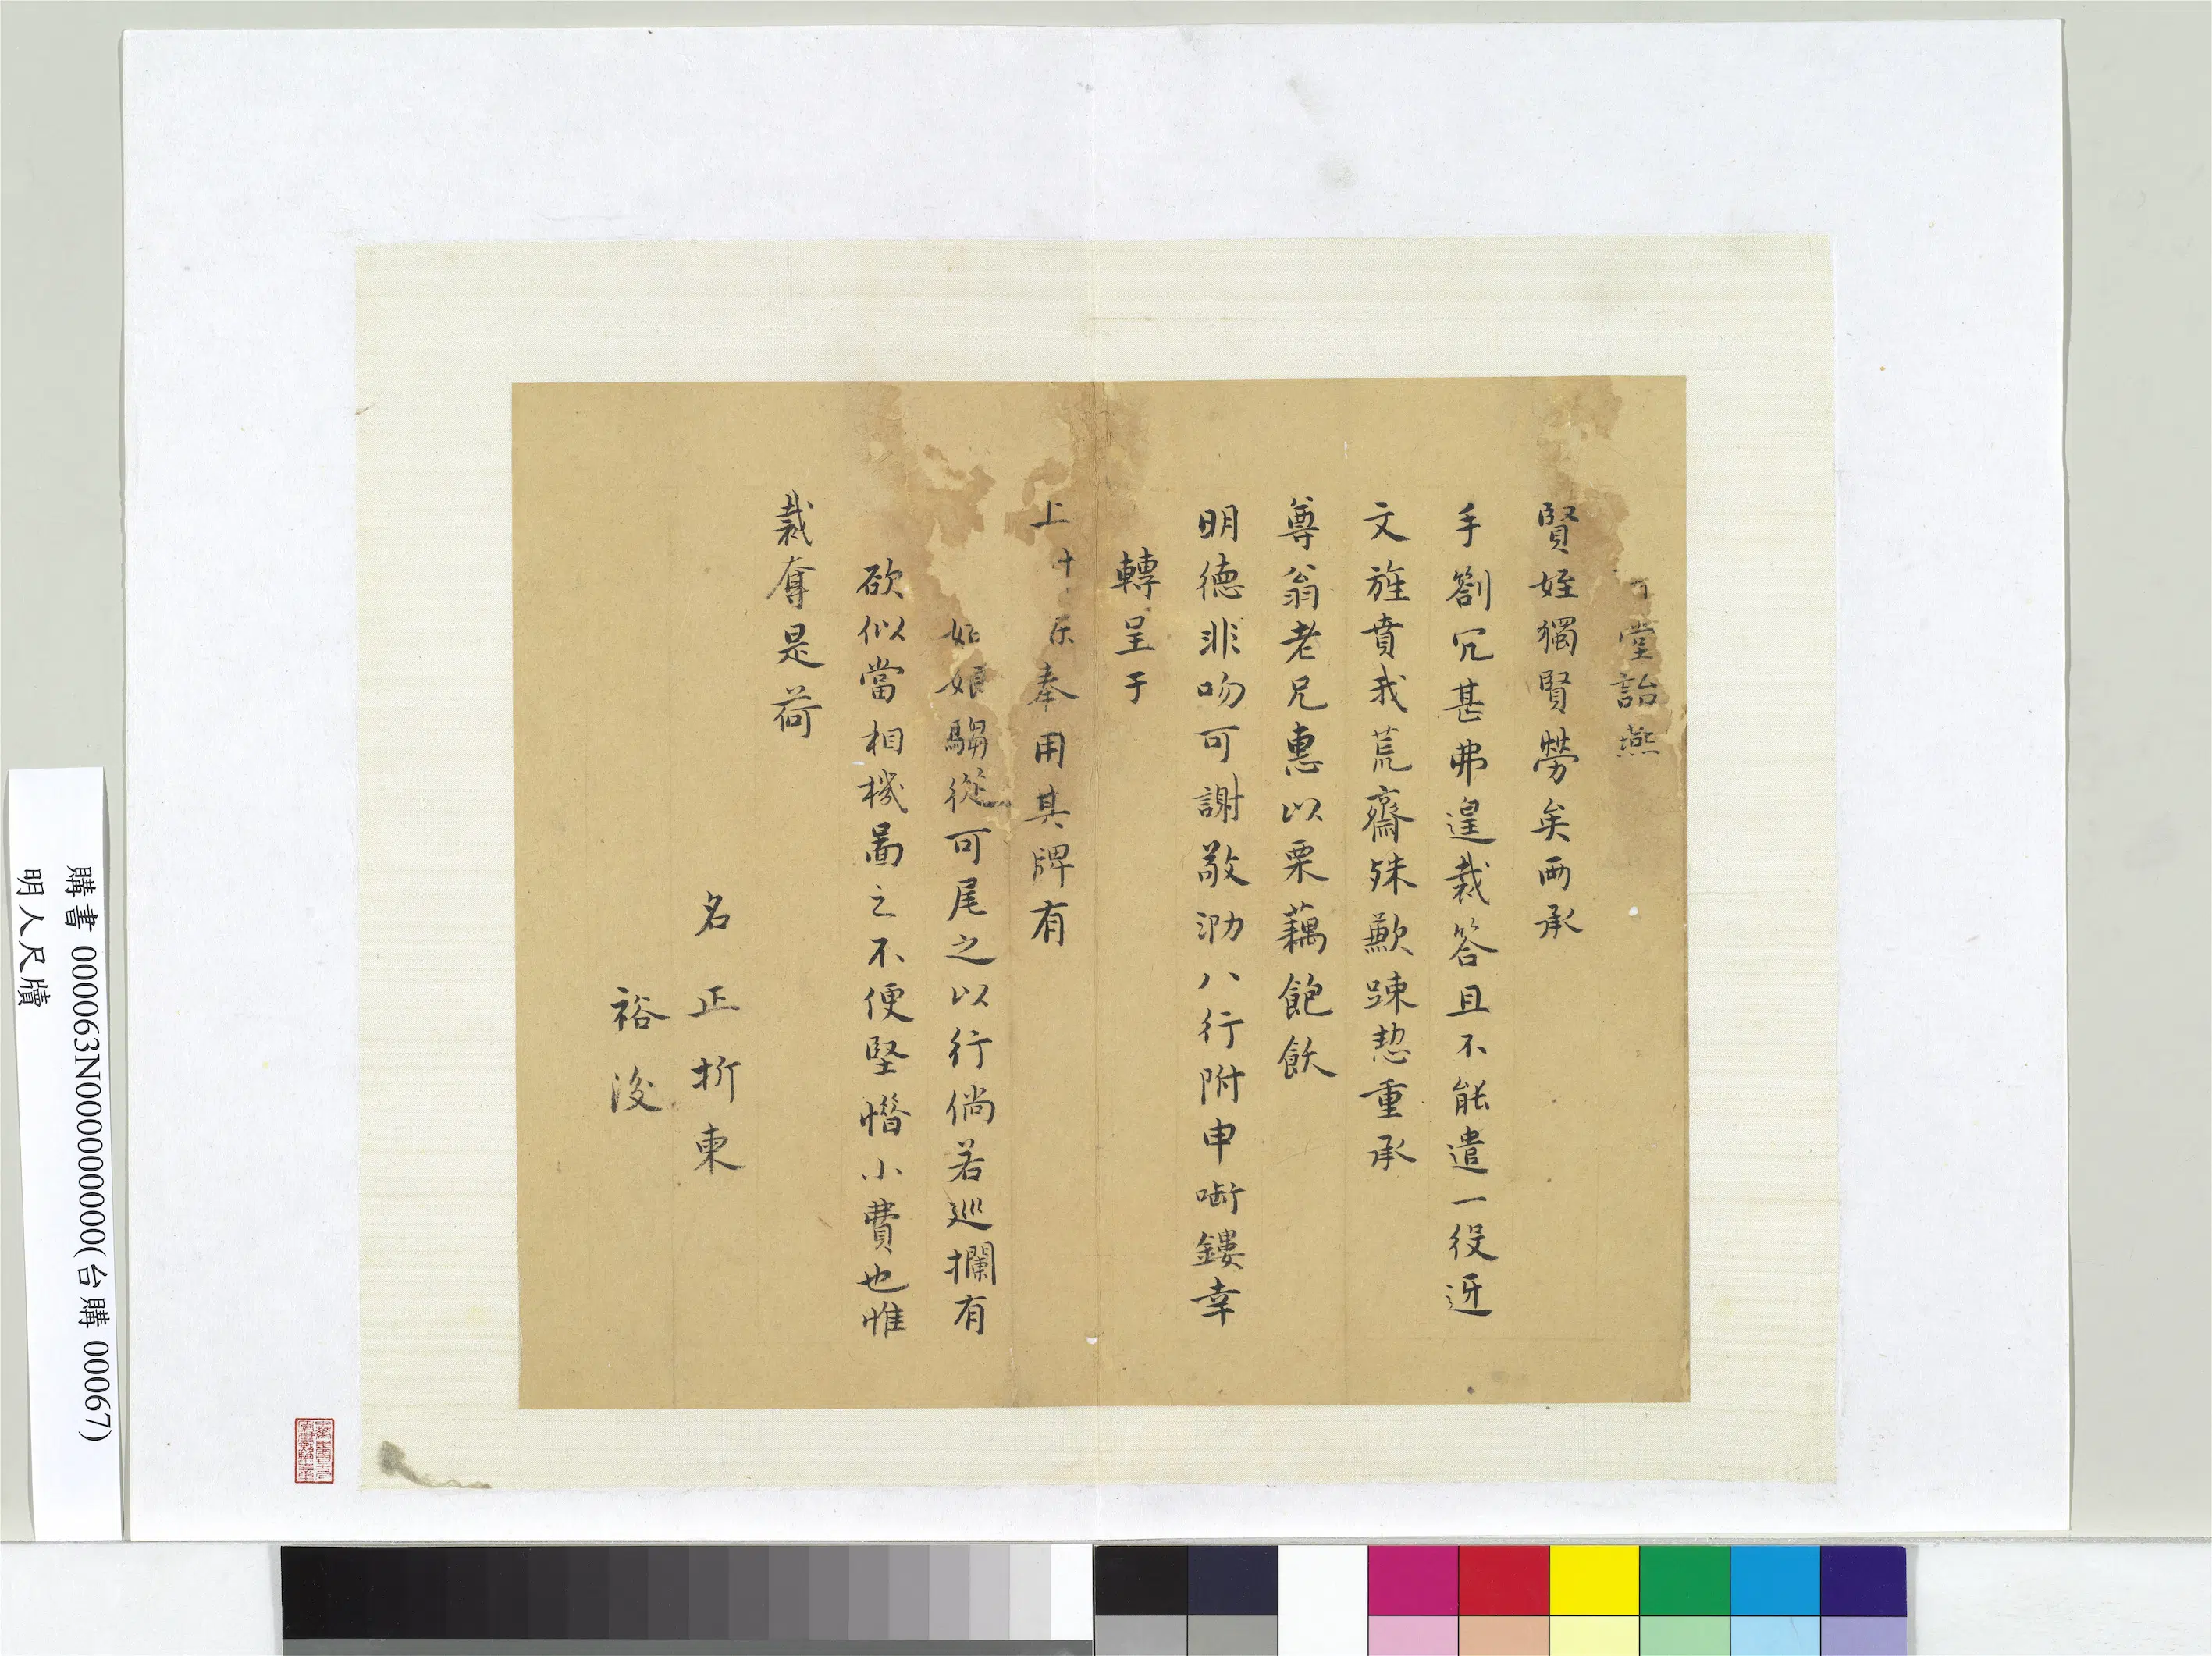 堂詒燕
賢姪獨賢勞矣两承
手劄冗甚弗遑裁答且不能遣一役迓
文旌賁我荒齋殊歉踈愸重承
尊翁老兄惠以栗藕飽飫
明德非吻可謝敬泐八行附申啣鏤幸
轉呈于
上十 奉用其牌有
娘騶從可尾之以行倘若巡攔有
欲似當相機啚之不便堅惜小費也惟
裁奪是荷
名正折柬
裕後
購書 000063N000000000(台購 00067)
明人尺牘